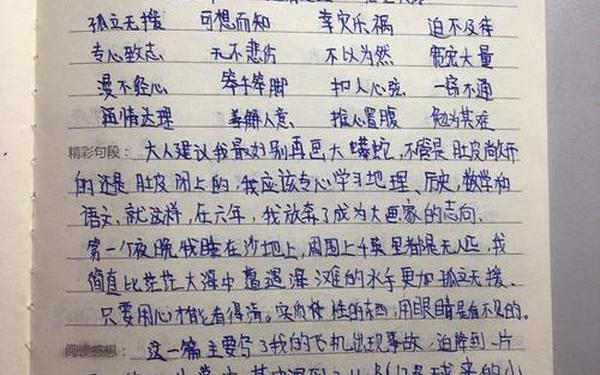 孤立无援 可想而知 幸灾乐祸 迫不及待
专心致志 无不悲伤 不以为然 宽宏大量
漫不经心 笨手笨脚 扣人心弦 一窍不通
通情达理 善解人意 推心置腹 勉为其难
精彩句段：大人建议我最好别再画大蟒蛇，不管是肚皮敞开
的还是肚皮闭上的，我应该专心学习地理、历史，数学和
语文、就这样，在六年，我放弃了成为大画家的志向．
第一个夜晚，我睡在沙地上，周围上千英里都渺无人烟，我
简直比茫茫大海中遭遇深滩的水手更加孤立无援．
只要用心才能看得清。实质性的东西，用眼睛是看不见的。
阅读感想：这一篇主要写了我的飞机出现事故，迫降到一片